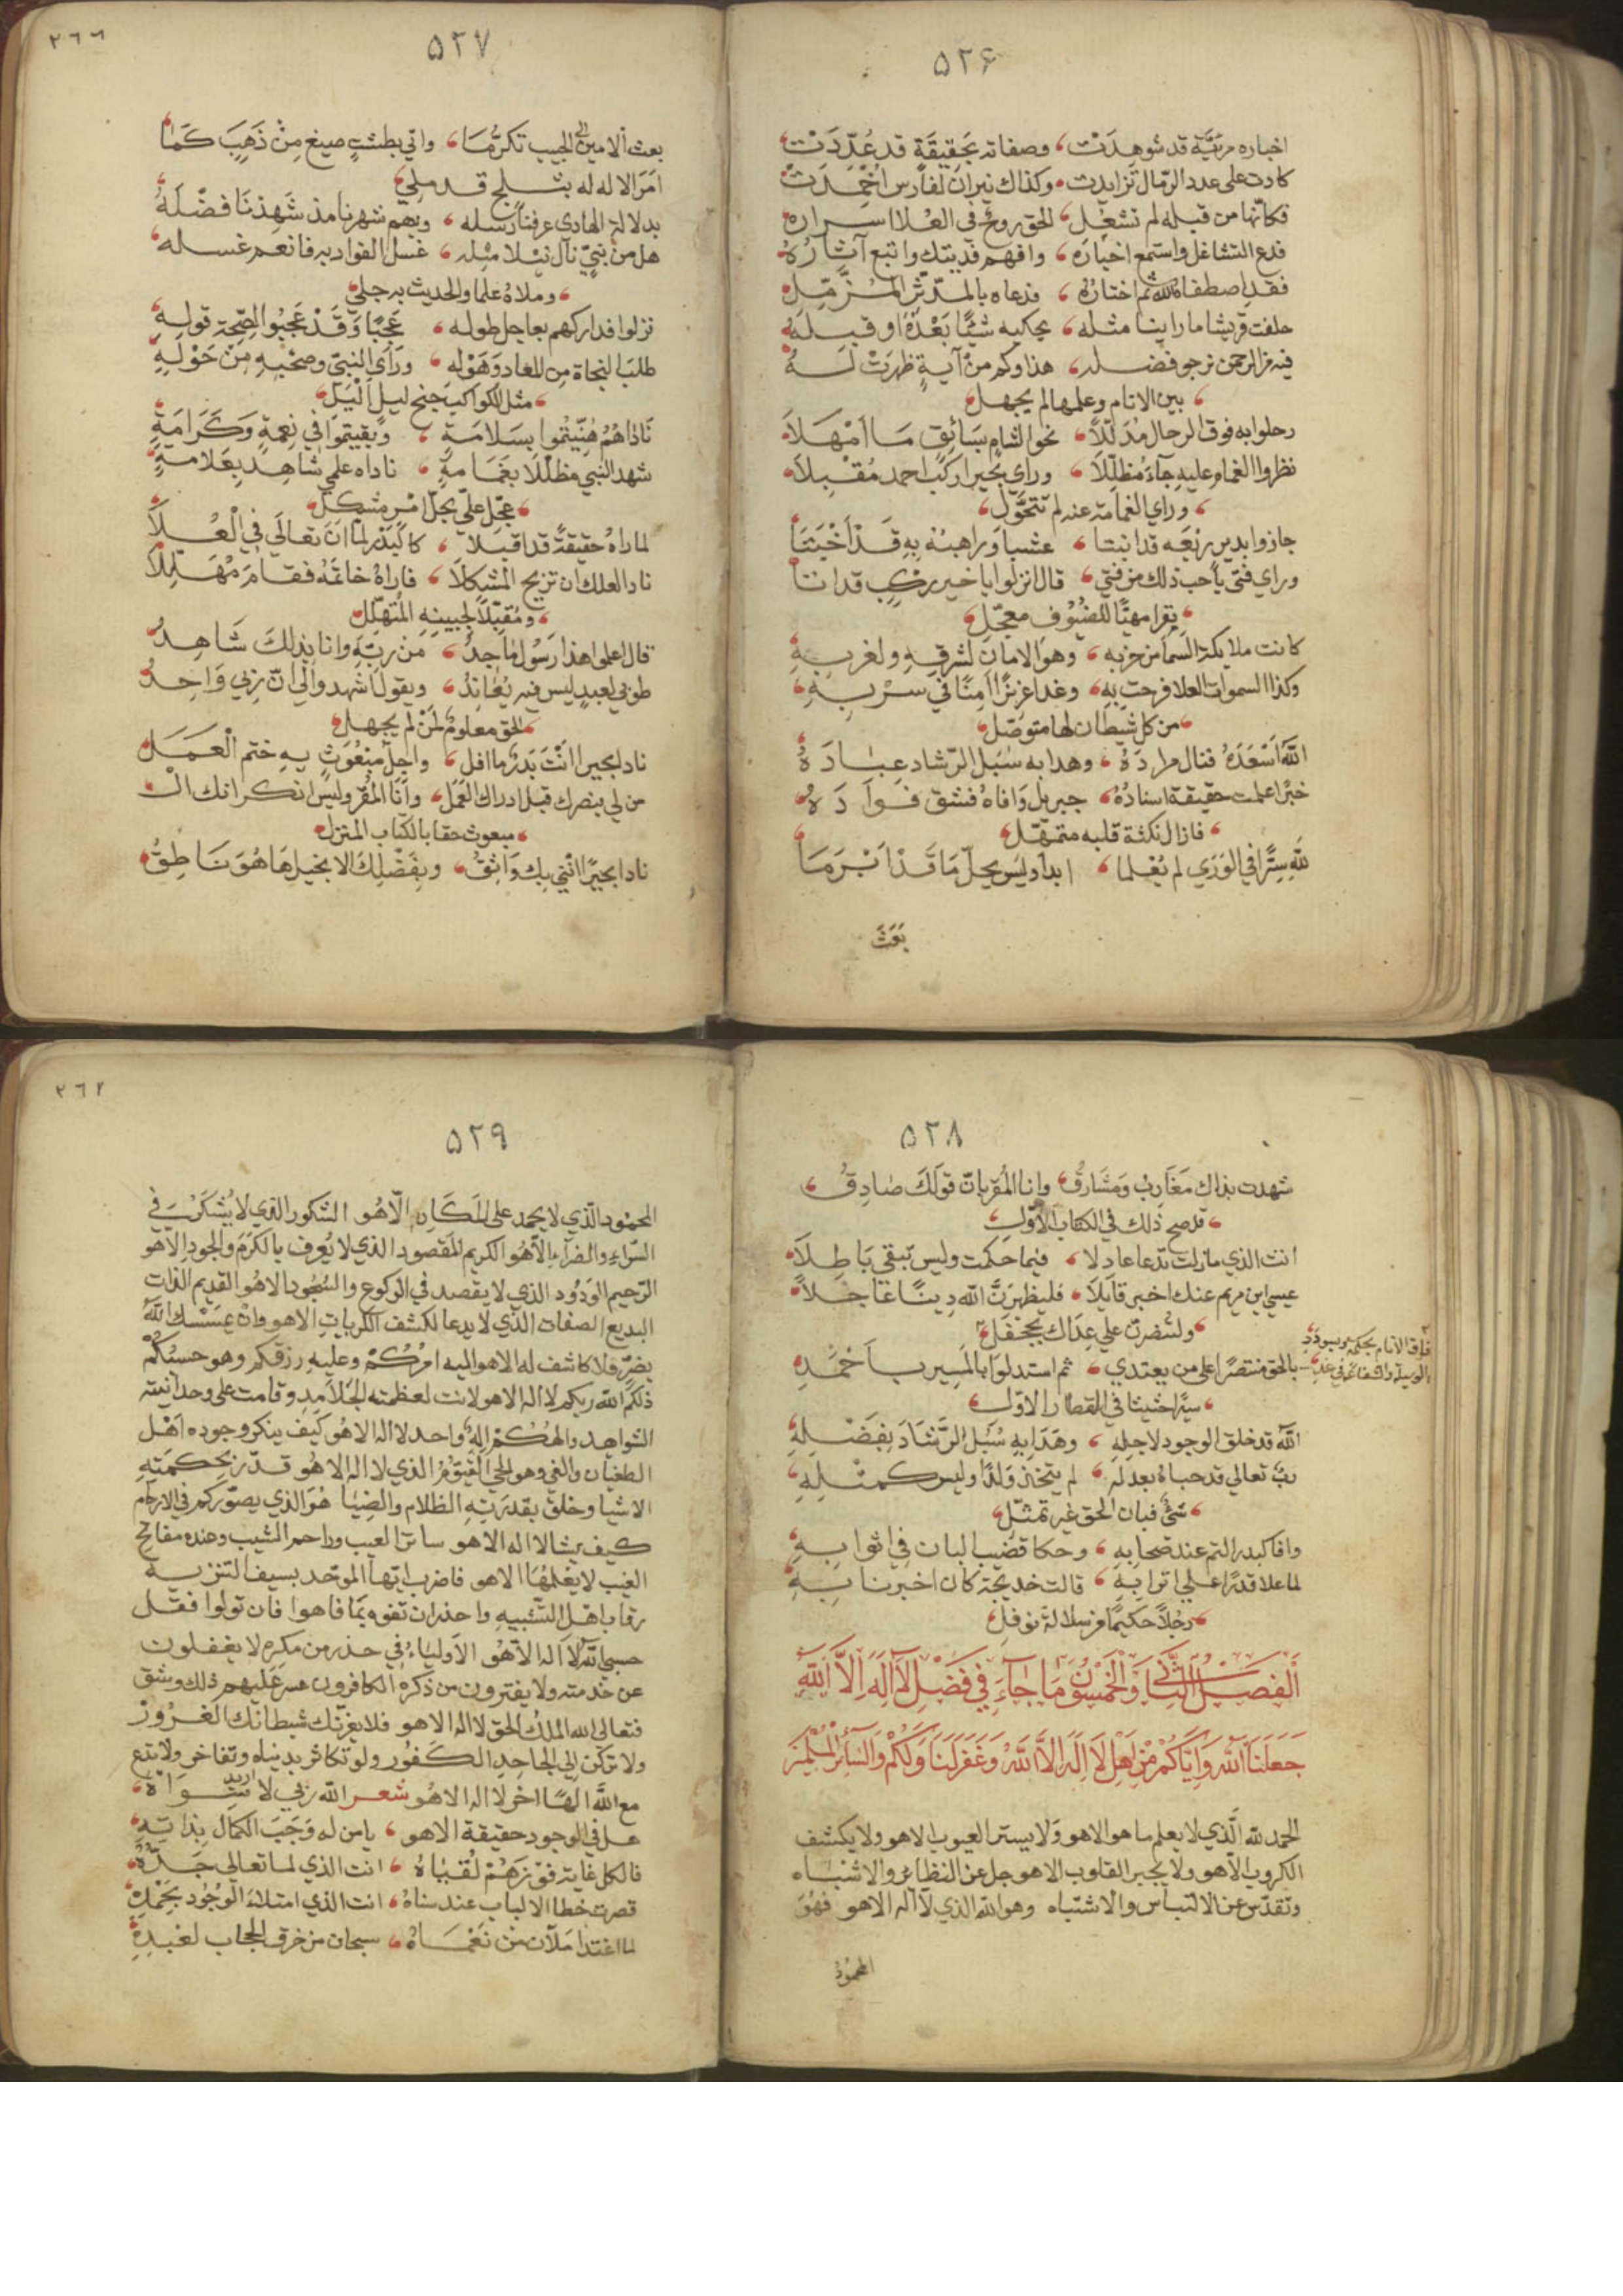 ٥٢۶
اخباره مرئيّة قد شوهدت وصفاته بحقيقة قد عُدّدت
كادت على عدد الرمال تزايدت وكذاك نيران لفارس اخمدت
فكانّها من قبله لم تشعل للحق روح في العُلا اسراره
فدع التشاغل واستمع اخباره وافهم فديتك واتبع آثاره
فقد اصطفاه الله ثم اختاره فدعاه بالمدّثر المزّمّل
حلفت قريشا ما راينا مثله يحكيه شيئًا بَعْدَهُ او قبله
فيه من الرحمن نرجو فضله هذا وكم من آية ظهرت له
بين الانام وعلمها لم يجهل
رحلوا به فوق الرحال مُدَلّلاً نحو الشام بسائق ما امْهَلاَ
نظروا الغمام وعليه جآء مُظلّلاً وراي بحيرا ركب احمد مقبلاً
وراي الغمامة عنه لم تتحوّل
جازوا بدير ربعه قد انبتا عشبا وراهبه به قد اخبتا
وراي فتى يا حب ذلك من فتى قال انزلوا يا خير ركب قد اتا
بقرا مهيّا للضيُوف معجّل
كانت ملايكة السما من حزبه وهو الامان لشرقه ولغربه
وكذا السموات العلا فرحت به وغدا عزيزًا امنًا في سربه
من كل شيطان لها متوصّل
الله اسعده فنال مراده وهدا به سُبل الرشاد عباده
خبرًا علمت حقيقة اسناده جبريل وافاه فشق فواده
فازال نكتة قلبه متمهّل
لله سرّا في الوري لم يُعلما ابدا وليس يحلّ ما قد ابرما
بَعَثَ
٢٦٦
٥٢٧
بعث الامين الى الحبيب تكرُّمَا واتي بطشتٍ صيغ من ذهب كما
امر الاله له بثلج قد ملي
بدلالة الهادي عرفنا رسله وبهم شهرنا مذ شهدنا فضله
هل من نبيّ نال نيلا مثله غسل الفواد به فانعم غسله
وملاهُ علما والحديث به جلي
نزلوا فداركهم بعاجل طوله عجبًا وقد عجبوا لصحة قوله
طلب النجاة من المعاد وهوله وراي النبيّ وصحبه من حوله
مثل الكواكب جنح ليل اليل
ناداهُمُ هُنّيتُموا بسلامةٍ وبقيتموا في نعمة وكرامةٍ
شهد النبي مظلّلا بغمامةٍ ناداه علمي شاهد بعلامةٍ
عجّل عليّ بحلّ امر مشكل
لما راهُ حقيقةً قد اقبلا كالبدر لما ان تعالى في العُلا
نادا لعلك ان تزيح المشكلا فاراهُ خاتمهُ فقام مُهَلّلاً
ومُقبّلاً لجبينه المُتهلّل
قال اعلموا هذا رسول ماجدُ من ربّه وانا بذلك شاهدُ
طوبي لعبدٍ ليس فيه يُعاندُ ويقول اشهدوا لي انّ ربي واحدُ
الحق معلومٌ لمن لم يجهل
نادا بحيرا انت بدرٌ ما افل واجلّ مبعُوثٍ به ختم العمل
من لي بنصرك قبل ادراك العَمَل وانا المقرّ وليس انكر انك الـ
ـمبعوث حقا بالكتاب المنزل
نادا بحيرًا انّني بك واثقُ وبفضلك الانجيل ها هو ناطقُ
٥٢٨
شهدت بذاك مغاربٌ ومشارقٌ وانا المُقر بانّ قولك صادقُ
قد صح ذلك في الكتاب الاوّل
انت الذي ما زلت تدعا عادلا فيما حكمت وليس تبقي باطلا
عيسى ابن مريم عنك اخبر قايلا فليظهرنّ الله دينًا عاجلاً
ولتنصرنّ علي عداك بجحفل
بالحق منتصرًا على من يعتدي ثم استدلوا بالمسير باحمد
سيرًا حثيثا في القطار الاوّل
الله قد خلق الوجود لاجله وهدا به سُبُل الرشاد بفضله
ربّ تعالي قد حباهُ بعدله لم يتخذ ولدًا وليس كمثله
شئ فبان الحق غير تمثّل
وافا كبدر التم عند صحابه وحكا قضيب البان في اثوابه
لما علا قدرًا علي اترابه قالت خديجة كان اخبرنا به
رجُلاً حكيمًا من سلالة نوفل
الفصل الثاني والخمسون ما جآء في فضل لا اله الا الله
جعلنا الله واياكم من اهل لا اله الا الله وغفر لنا ولكم ولسائر المسلمين
الحمد لله الّذي لا يعلم ما هو الا هو ولا يستر العيوب الا هو ولا يكشف
الكروب الا هو ولا يجبر القلوب الا هو جل عن النظاير والاشباه
وتقدّس عن الالتباس والاشتباه وهو الله الذي لا اله الا هو فهو
المحمُودُ
٢٦٢
٥٢٩
المحمود الّذي لا يحمد على المكاره الّا هو الشكور الذي لا يُشكر في
السّراء والضراء الّا هو الكريم المقصود الذي لا يُعرف بالكرم والجود الا هو
الرّحيم الودُود الذي لا يقصد في الركوع والسّجُود الا هو القديم الذات
البديع الصفات الّذي لا يدعا لكشف الكربات الا هو وان يمسسك الله
بضرّ فلا كاشف له الا هو اليه امركم وعليه رزقكم وهو حسبكم
ذلكم الله ربكم لا اله الا هو لانت لعظمته الجلامد وقامت على وحدانيته
الشواهد والهكم اله واحد لا اله الا هو كيف ينكر وجوده اهل
الطغيان والغي وهو الحي القيّوم الذي لا اله الا هو قدّر بحكمته
الاشيا وخلق بقدرته الظلام والضيا هو الذي يصوّركم في الارحام
كيف يشا لا اله الا هو ساتر العيب وراحم الشيب وعنده مفاتح
الغيب لا يعلمها الا هو فاضرب ايّها الموحّد بسيف التنزيه
رقاب اهل التّشبيه واحذر ان تفوه بما فاهوا فان تولوا فقل
حسبي الله لا اله الا هو الاولياءُ في حذر من مكره لا يغفلون
عن خدمته ولا يفترون من ذكره الكافرون عسر عليهم ذلك وشق
فتعالى الله الملكُ الحق لا اله الا هو فلا يغرّنك شيطانك الغرور
ولا تركن الي الجاحد الكفُور ولو تكاثر بدنياه وتفاخر ولا تدع
مع الله الهًا اخر لا اله الا هو شعر الله ربي لا اريد سواهُ
هل في الوجود حقيقة الا هو يا من له وجب الكمال بذاته
فالكل غاية فوزهم لُقياهُ انت الذي لما تعالى جدّهُ
قصرت خطا الالباب عند سناهُ انت الذي امتلاء الوجُود بحمده
لما اغتدا ملآن من نعماهُ سبحان من خرق الحجاب لعبده